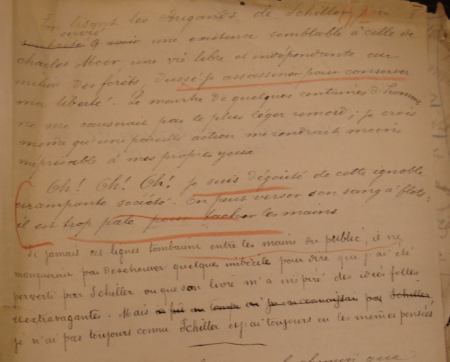 En lisant les Brigands, de Schiller, j'ai
envié
d'avoir une existence semblable à celle de
charles Moor, une vie libre et indépendante au
milieu des forêts, dussé-je assassiner pour conserver
ma liberté. Le meurtre de quelques centaines d'hommes
ne me causerait pas le plus léger remord; je crois
même qu'une pareille action me rendrait moins
méprisable à mes propres yeux.
Oh! Oh! Oh! je suis dégoûté de cette ignoble
et rampante société. On peut verser son sang à flots,
il est trop pâle pour tacher les mains
Si jamais ces lignes tombaient entre les mains du public, il ne
manquerait pas de s'échauver quelque imbécile pour dire que j'ai été
perverti par Schiller ou que son livre m'a inspiré des idées folles
extravagantes. Mais
je n'ai pas toujours connu Schiller et j'ai toujours eu les mêmes pensées
que